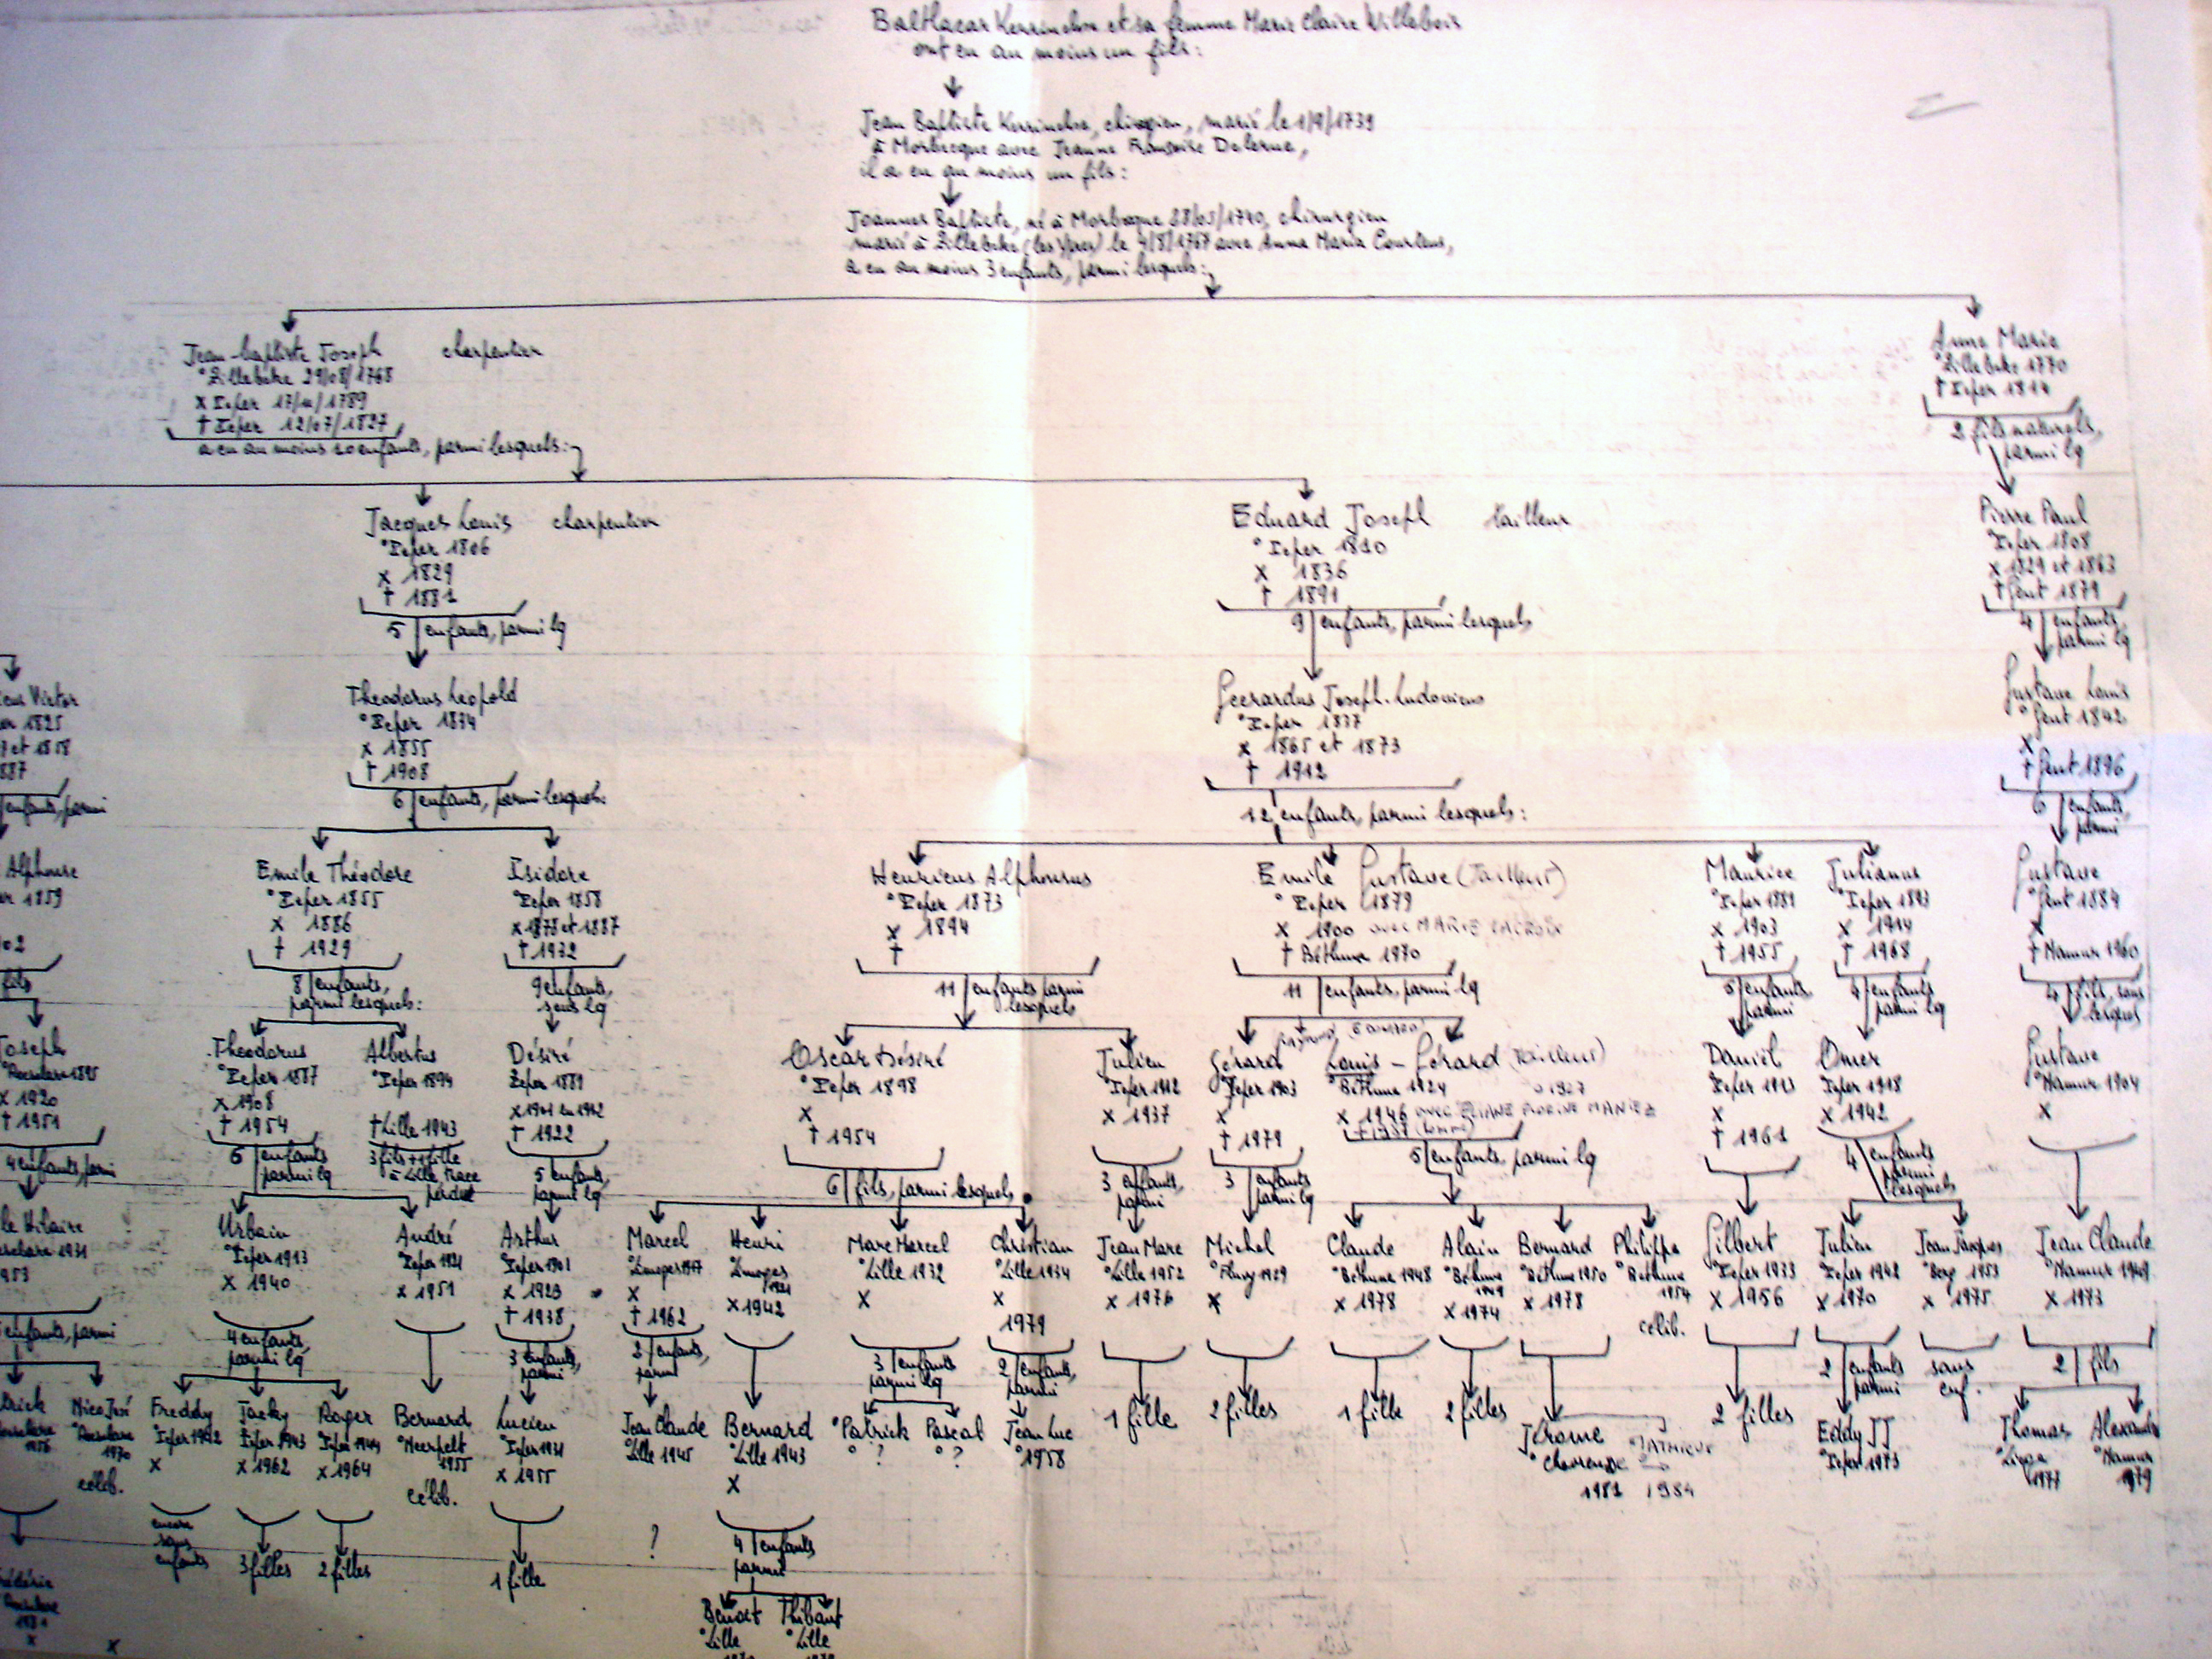 Balthazar et sa femme Marie Claire Willebois
ont eu au moins un fils :
Jean Baptiste, marié le 1/9/1739
à Morbecque avec Jeanne Françoise Delerue,
il a eu au moins un fils :
Joannes Baptiste, né à Morbecque 28/05/1740, chirurgien
marié à Zillebeke (lez Ypres) le 4/8/1767 avec Anna Maria
a eu au moins 3 enfants, parmi lesquels :
Jean-baptiste Joseph charpentier
° Zillebeke 29/08/1768
x Ieper 17/11/1789
† Ieper 12/07/1827
a eu au moins 10 enfants, parmi lesquels :
Anne Marie
° Zillebeke 1770
† Ieper 1814
2 fils naturels,
parmi lq
Jacques Louis charpentier
° Ieper 1806
x 1829
† 1881
5 enfants, parmi lq
Eduard Joseph tailleur
° Ieper 1810
x 1836
† 1891
9 enfants, parmi lesquels
Pierre Paul
° Ieper 1808
x 1829 et 1863
† Gent 1879
4 enfants,
parmi lq
Victor
1825
et 1858
887
enfants, parmi
Theodorus Leopold
° Ieper 1834
x 1855
† 1908
6 enfants, parmi lesquels :
Geerardus Joseph-Ludovicus
° Ieper 1837
x 1865 et 1873
† 1912
12 enfants, parmi lesquels :
Gustave Louis
° Gent 1842
x
† Gent 1896
6 enfants,
parmi
Alphonse
1859
02
fils
Emile Théodore
° Ieper 1855
x 1886
† 1929
8 enfants,
parmi lesquels :
Isidore
° Ieper 1858
x 1878 et 1887
† 1932
9 enfants,
sous lq
Henricus Alphonsus
° Ieper 1873
x 1894
†
11 enfants parmi
lesquels
Emile Gustave (Tailleur)
° Ieper 1879
x 1900 avec MARIE LACROIX
† Béthune 1970
11 enfants, parmi lq
Maurice
° Ieper 1881
x 1903
† 1955
5 enfants,
parmi
Julianus
° Ieper 1893
x 1914
† 1968
4 enfants
parmi lq
Gustave
° Gent 1884
x
† Namur 1960
4 fils, sous
lesquels
Joseph
° Roeselare 1895
x 1920
† 1951
4 enfants, parmi
Theodorus
° Ieper 1887
x 1908
† 1954
6 enfants
parmi lq
Albertus
° Ieper 1894
† Lille 1943
3 fils + 1 fille
à Lille, trace
perdue
Désiré
Ieper 1881
x 1901 en 1912
† 1922
5 enfants,
parmi lq
Oscar Désiré
° Ieper 1898
x
† 1954
6 fils, parmi lesquels
Julien
° Ieper 1912
x 1937
3 enfants,
parmi
Gérard
° Ieper 1903
x
† 1979
3 enfants
parmi lq
Louis - Gérard (Tailleur)
° Béthune 1924
x 1946 avec
5 enfants, parmi lq
Daniel
Ieper 1913
x
† 1961
Omer
Ieper 1918
x 1942
4 enfants
parmi
lesquels
Gustave
° Namur 1904
x
Hilaire
1931
1953
enfants, parmi
Urbain
° Ieper 1913
x 1940
4 enfants,
parmi lq
André
° Ieper 1921
x 1951
Arthur
° Ieper 1901
x 1923
† 1938
3 enfants,
parmi
Marcel
° Limoges 1917
x
† 1962
2 enfants,
parmi
Henri
Limoges
1921
x 1942
Marc Marcel
° Lille 1932
x
3 enfants
parmi lq
Christian
° Lille 1934
x
1979
2 enfants,
parmi
Jean Marc
° Lille 1952
x 1976
1 fille
Michel
1929
x
2 filles
Claude
° Béthune 1948
x 1978
1 fille
Alain
° Béthune
1949
x 1974
2 filles
Bernard
° Béthune 1950
x 1978
Philippe
° Béthune
1954
célib.
Gilbert
° Ieper 1933
x 1956
2 filles
Julien
° Ieper 1942
x 1970
2 enfants
parmi
Jean Jacques
1953
x 1975
sans
enf.
Jean Claude
° Namur 1949
x 1973
2 fils
Nico José
° Roeselare
1970
célib.
Freddy
° Ieper 1942
x
encore
sans
enfants
Jacky
° Ieper 1943
x 1962
3 filles
Roger
° Ieper 1944
x 1964
2 filles
Bernard
° Neerpelt
1955
célib.
Lucien
° Ieper 1931
x 1955
1 fille
Jean Claude
° Lille 1945
?
Bernard
° Lille 1943
x
4 enfants
parmi
Patrick
° ?
Pascal
° ?
Jean Luc
° 1958
Jérome
1981
MATHIEU
1984
Eddy JJ
° Ieper 1973
Thomas
1977
Alexandre
° Namur
1979
Benoit
° Lille
Thibaut
° Lille